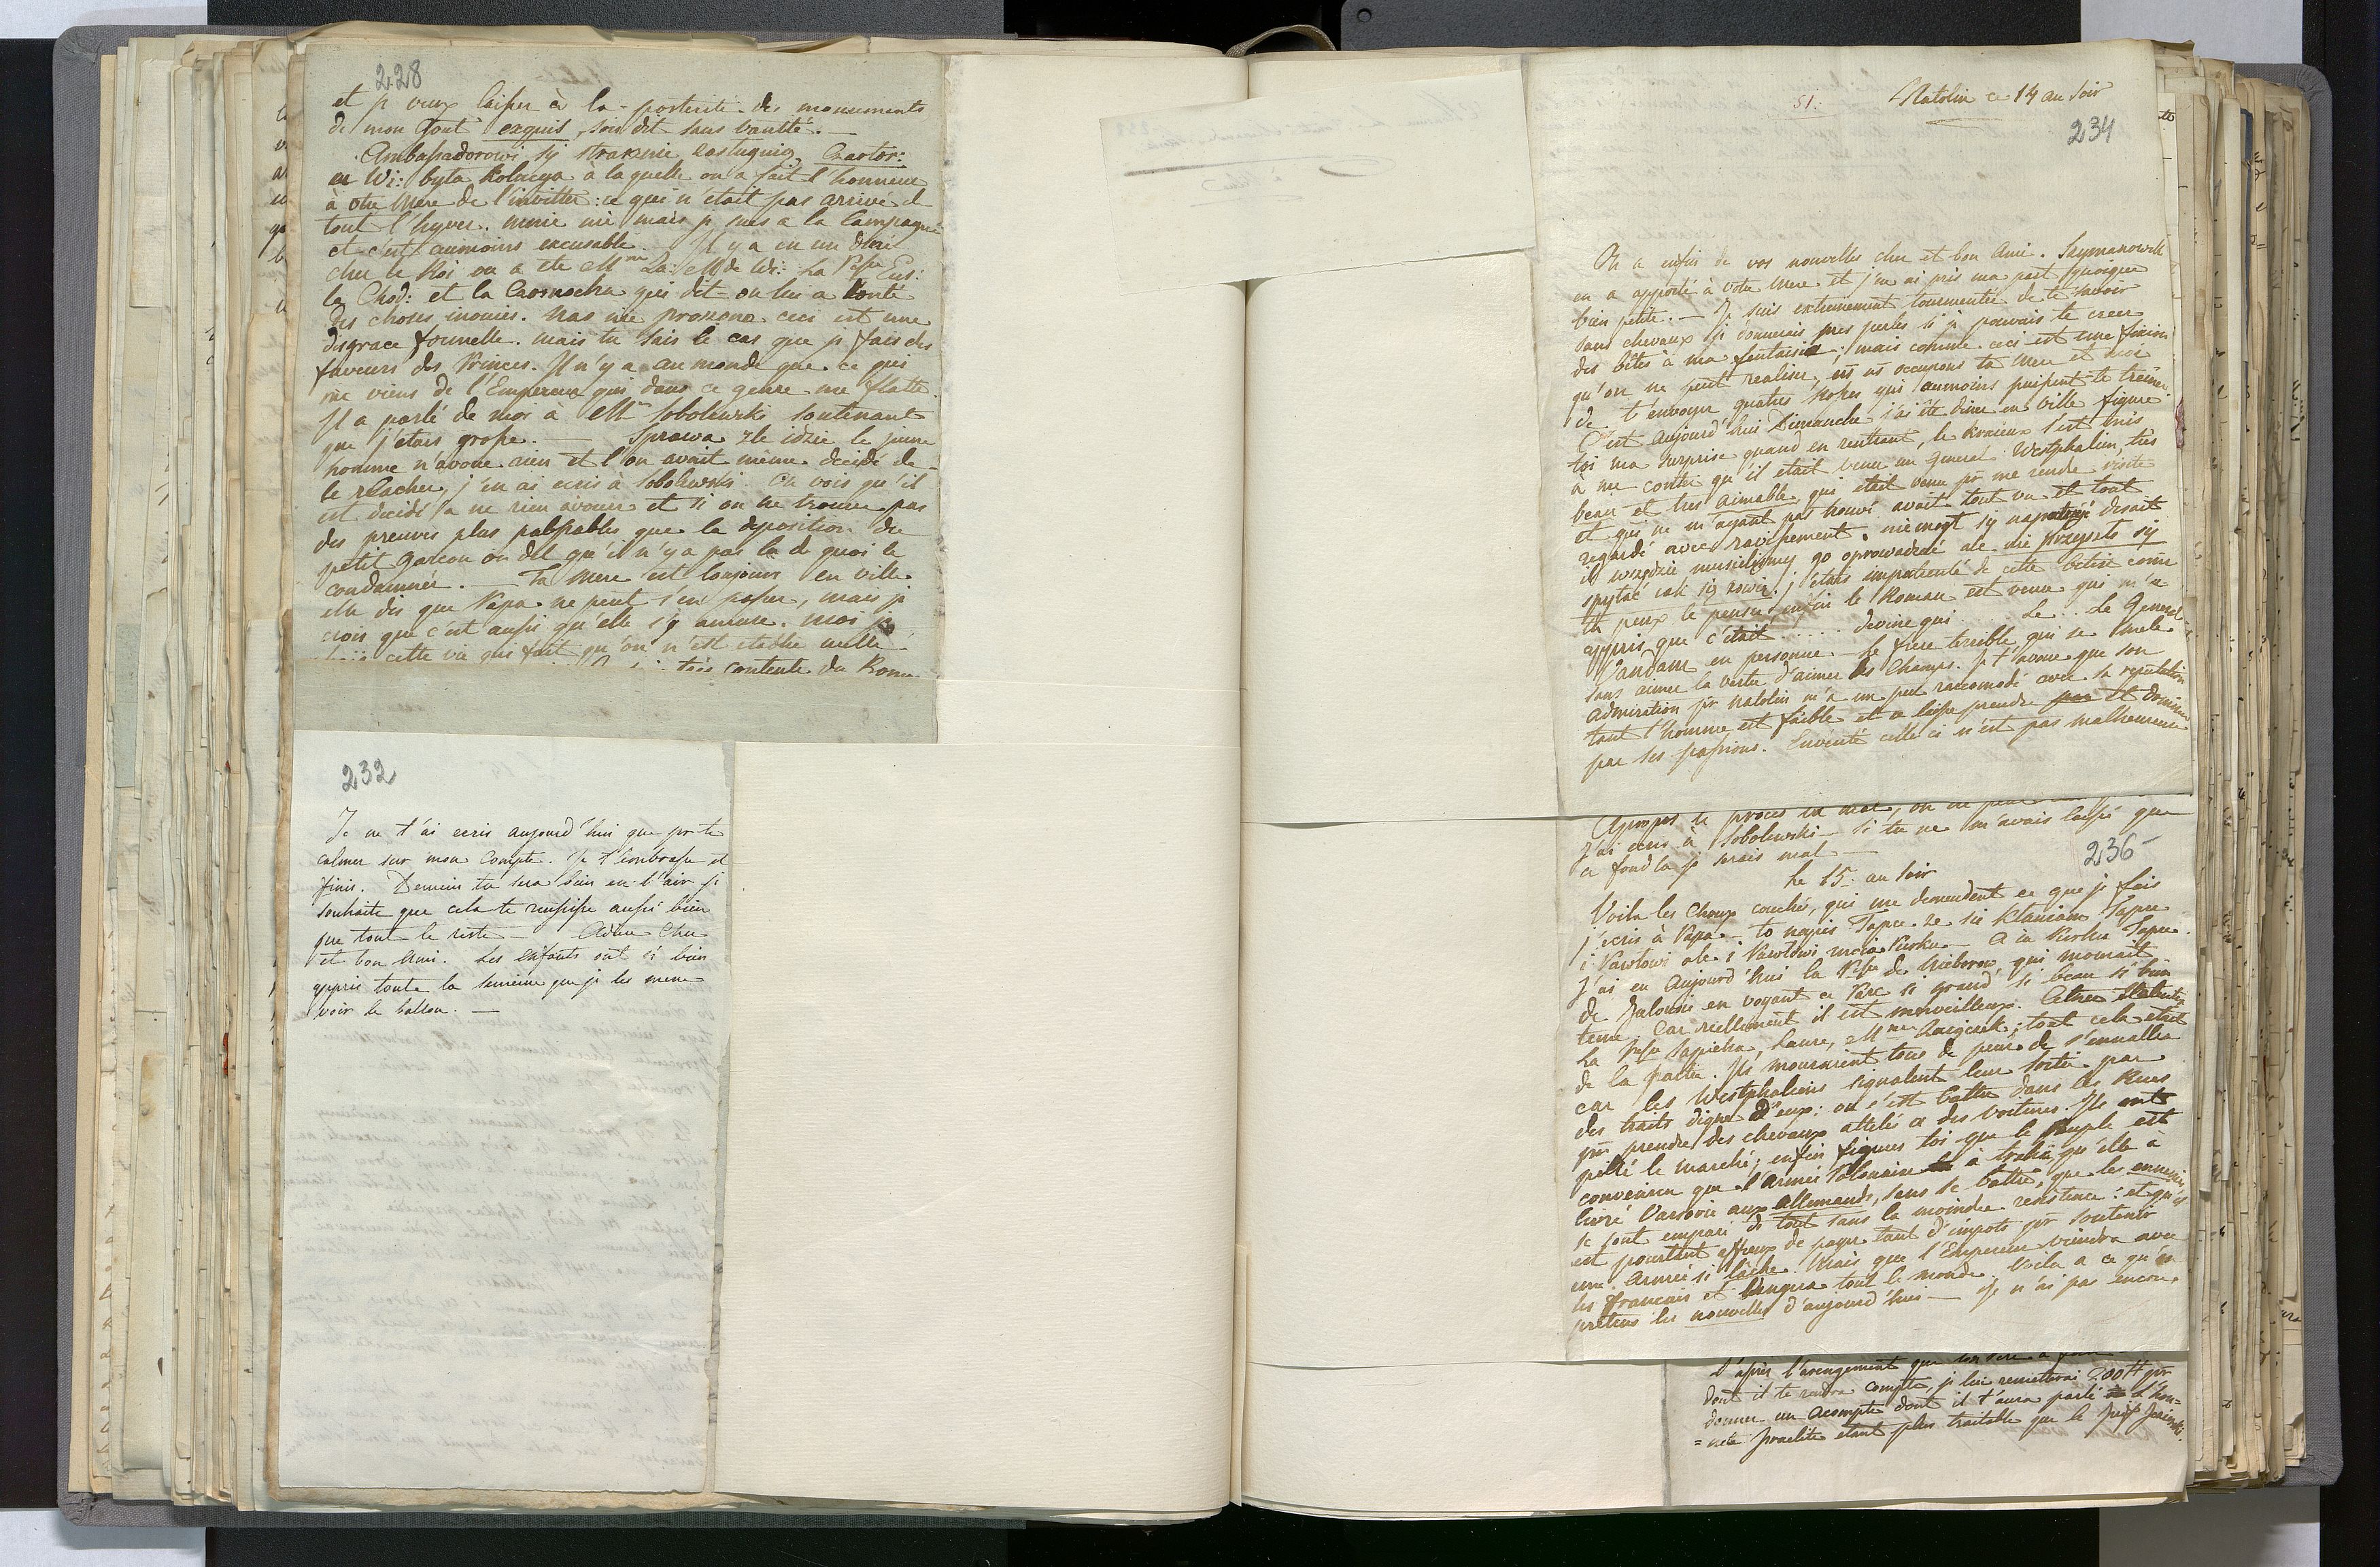 228
et je veux laisser à la posterité des monuments
de mon Gout exquis, soit dit sans vanité. —
Ambassadorowi sy strasznie zastuguia. Czartor:
à votre Mere de l'invitter: ce qui n'était pas arrivé de
tout l'hyver. mnie nie mais je suis a la Campagne
et c'est aumoins excusable. — Il y a eu un diné
chez le Roi ou a été Mme La: Mde Wi: La Psse
la Chod: et la Czosnocka qui dit on lui a conté
des choses inouies. nas nie proszono ceci est une
disgrace formelle. mais tu sais le cas que je fais des
faveurs des Princes. Il n'y a au monde que ce qui
me viens de l'Empereur qui dans ce genre me flatte.
Il a parlé de moi à Mr Sobolewski soutenant
que j'etais grosse. — Sprawa zle idzie le jeune
homme n'avoue rien et l'on avait même decidé de
le relacher, j'en ai ecris à Sobolewski. On vois qu'il
est decidé a ne rien avouer et si on ne trouve pas
des preuves plus palpables que la deposition du
petit garcon on dit qu'il n'y a pas la de quoi le
condamner. — Ta Mere est toujours en ville
elle dis que Papa ne peut s'en passer, mais je
crois que c'est aussi qu'elle s'y amuse. moi je
cette vie qui fait qu'on n'est etablie nulle
très contente du
232
Je ne t'ai ecris aujourd'hui que pr te
calmer sur mon Compte. Je t'embrasse et
finis. Demain tu sera bien en l'air je
souhaite que cela te reussisse aussi bien
que tout le reste — Adieu Cher
et bon Ami. Les enfants ont si bien
appris toute la semaine que je les mene
voir le ballon. —
51.
Natolin ce 14 au soir
234
On a enfin de vos nouvelles cher et bon Ami. Szymanowski
en a apporté à votre Mere et j'en ai pris ma part quoique
bien petite. — Je suis extremement tourmentée de te savoir
sans chevaux je donnerais mes perles si je pouvais te creer
des bêtes à ma fantaisie; mais comme ceci est une
qu'on ne peut realiser, ns ns occupons ta Mere et moi
de t'envoyer quatres Rosses qui aumoins puissent te treiner
C'est aujourd'hui Dimanche j'ai été diner en ville figure
toi ma surprise quand en rentrant, le s'est mis
à me conter qu'il etait venu un General Westphalien, très
beau et tres aimable, qui etait venu pr me rendre visite
et qui ne m'ayant pas trouvé avait tout vu et tout
regardé avec ravissement. niemogt sy napatrzyé disait
il wszgdzie musielismy go oprowadzié ale nie przyszto sy
spytaé iak sy zowie. j'étais impatienté de cette betise comme
tu peux le penser enfin le Roman est venu qui m'a
appris que c'était ..... devine qui ..... Le ... Le General
Vandam en personne — Le frere terrible qui se mele
sans aimer la vertu d'aimer les Champs. Je t'avoue que son
admiration pr Natolin m'a un peu raccomodé avec sa reputation
tant l'homme est faible et se laisse prendre et dominer
par ses passions. Enverité celle ci n'est pas malheureuse
Apropos le proces va mal, on ne peut
J'ai ecris à Sobolewski — Si tu ne m'avais laissé que
ce fond la je serais mal —
236
Le 15. au soir
Voila les Choux couchés, qui me demandent ce que je fais
j'ecris à Papa — to napisz Tapce ze sie Ktaniam Tapce
i Pawtowi ale i Pawtowi
J'ai eu Aujourd'hui la Psse de Nieborow qui mourait
de Jalousie en voyant ce Parc si grand si beau si bien
tenu. Car reellement il est merveilleux.
La Psse Sapieha, Laure, Mme ; tout cela etait
de la Partie. Ils mouraient tous de peur de s'enn'aller
car les Westphaliens signalent leur sortie par
des traits digne d'eux: on s'est battu dans les Rues
pr prendre des chevaux attelés a des voitures. Ils ont
pillé le marché; enfin figures toi que le peuple est
convaincu que l'armée Polonaise a trahie, qu'elle à
livré Varsovie aux Allemands, sans se battre, que les ennemis
se sont emparé de tout sans la moindre resistance: et qu'il
est pourtant affreux de payer tant d'impots pr soutenir
une Armée si lâche. Mais que l'Empereur viendra avec
les francais et vangera tout le monde. Voila a ce qu'on
pretens les nouvelles d'aujourd'hui — Je n'ai pas encore
D'après l'arengement que
dont il te rendra compte, je lui remetterai 200 # pr
donner un acompte dont il t'aura parlé l'hon=
=nete Israelite etant plus traitable que le